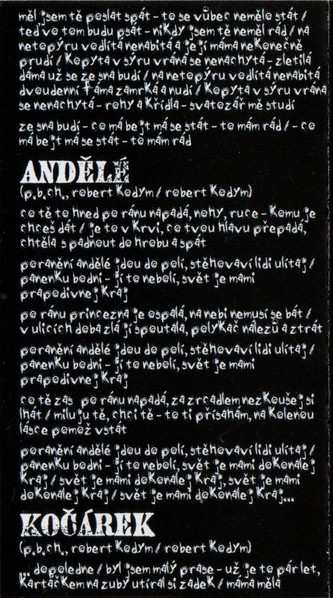 měl jsem tě poslat spát - to se vůbec nemělo stát /
teď v tom budu psát - nikdy jsem tě neměl rád / na
netopýru vodlítá nenabitá a její máma nekonečně
prudí / kopyta v sýru vrána se nenachytá - zletilá
dáma už se ze sna budí / na netopýru vodlítá nenabitá
dvoudenní táma zamrká a nudí / kopyta v sýru vrána
se nenachytá - rohy a křídla - svatozář mě studí
ze sna budí - co má bejt má se stát - to mám rád / - co
má bejt má se stát - to mám rád
ANDĚLÉ
(p.b.ch., robert kodym / robert kodym)
co tě to hned po ránu napadá, nohy, ruce - komu je
chceš dát / je to v krvi, co tvou hlavu přepadá,
chtěla s padnout do hrobu a spát
poranění andělé jdou do polí, stěhovaví lidi ulítaj /
panenku bodni - jí to nebolí, svět je mámi
prapodivnej kraj
po ránu princezna je ospalá, na nebi nemusí se bát /
v ulicích doba zlá jí spoutala, polykač nálezů a ztrát
poranění andělé jdou do polí, stěhovaví lidi ulítaj /
panenku bodni - jí to nebolí, svět je mámi
prapodivnej kraj
co tě zas po ránu napadá, za zrcadlem nezkoušej si
lhát / miluju tě, chci tě - to ti přísahám, na kolenou
lásce pomož vstát
poranění andělé jdou do polí, stěhovaví lidi ulítaj /
panenku bodni - jí to nebolí, svět je mámi dokonalej
kraj / svět je mámi dokonalej kraj / svět je mámi
dokonalej kraj / svět je mámi dokonalej kraj...
KOČÁREK
(p.b.ch., robert kodym / robert kodym)
... dopoledne / byl jsem malý prase - už je to pár let,
kartáčkem na zuby utíral si zadek / máma měla